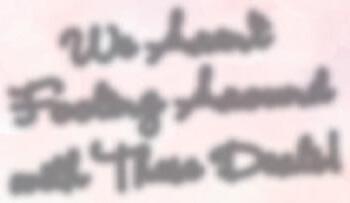 We Aren't
Fooling Around
with These Deals!